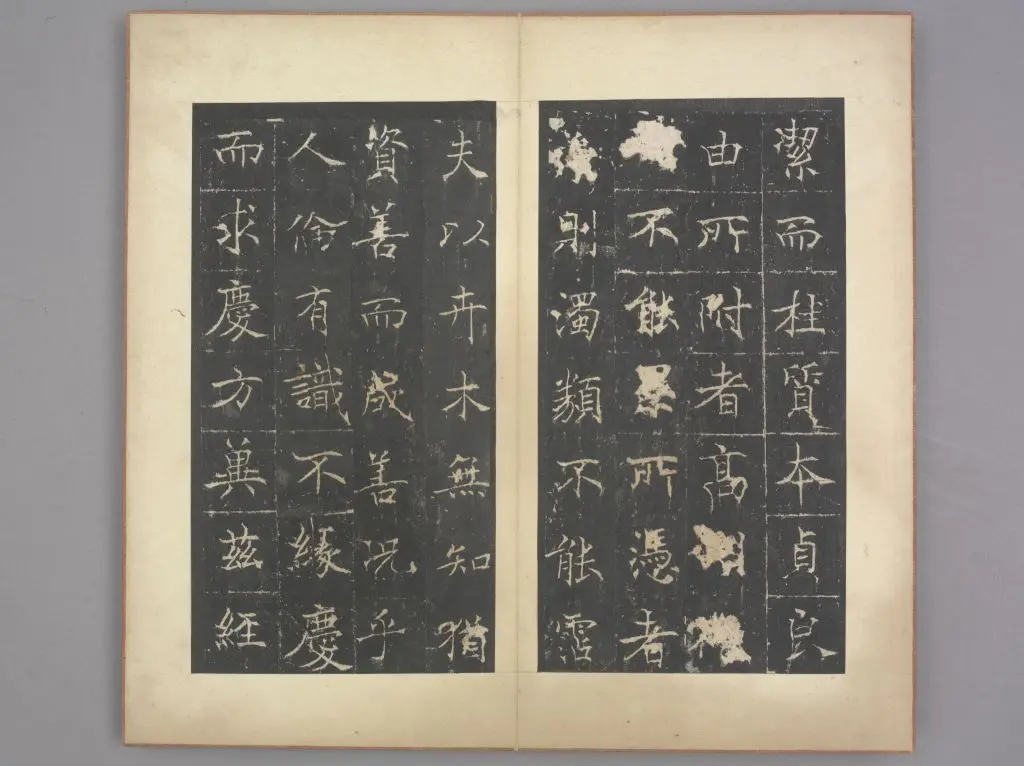 潔而桂質本貞良
由所附者高
不能累所憑者
則濁類不能霑
夫以卉木無知猶
資善而成善況乎
人倫有識不緣慶
而求慶方冀茲經